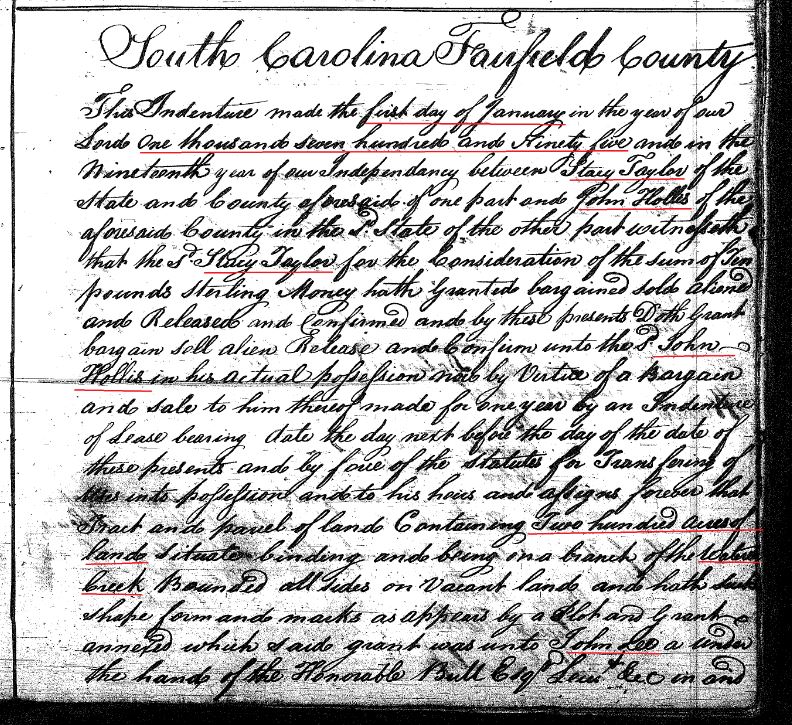 South Carolina Fairfield County
This Indenture made the first day of January in the year of our
Lord one thousand seven hundred and Ninety five and in the
Nineteenth year of our Independancy between Stacy Taylor of the
State and County aforesaid of one part and John Hollis of the
aforesaid County in the Sd. State of the other part witnesseth
that the Sd. Stacy Taylor for the Consideration of the sum of Ten
pounds Sterling Money hath Granted bargained sold aliened
and Released and Confirmed and by these presents Doth Grant
bargain sell alien Release and Confirm unto the Sd. John
Hollis in his actual possession now by Virtue of a Bargain
and sale to him thereof made for one year by an Indenture
of Lease bearing date the day next before the day of the date of
these presents and by force of the Statutes for Transfering of
uses into possession and to his heirs and assigns forever that
Tract and parcel of land Containing Two hundred acres of
land Situate binding and being on a branch of the
Creek Bounded all sides on Vacant land and hath such
shape form and marks as appears by a Plot and Grant
annexed which said grant was unto John Lee a under
the hand of the Honorable Bull Esqr. Leiut &c in and